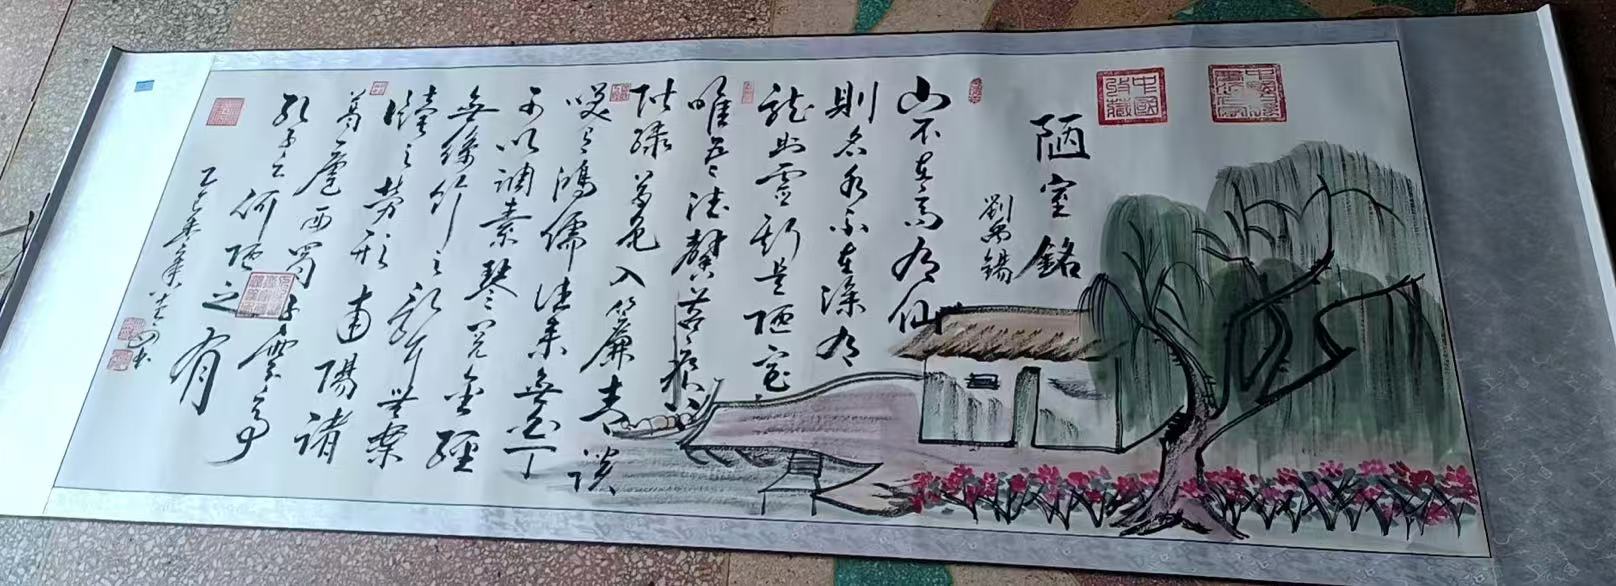 中國收藏
陋室銘
劉禹錫
山不在高有仙
則名水不在深有
龍則靈斯是陋室
唯吾德馨苔痕上
階綠草色入簾青談
笑有鴻儒往來無白丁
可以調素琴閱金經
無絲竹之亂耳無案
牘之勞形南陽諸
葛廬西蜀子雲亭
孔子云何陋之有
乙巳年